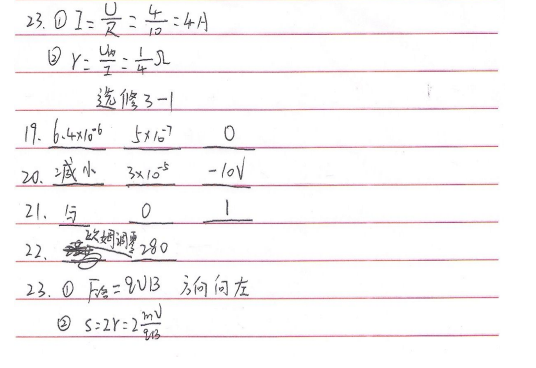 23. ① I = U/R = 4/10 = 4A
② r = U内/I = 1/4 Ω
选修3-1
19. 6.4×10⁻⁶ 5×10⁻⁷ 0
20. 减小 3×10⁻⁵ -10V
21. 与 0 1
22. 欧姆调零 280
23. ① F洛 = qUB 方向向左
② S = 2r = 2 mV/qB